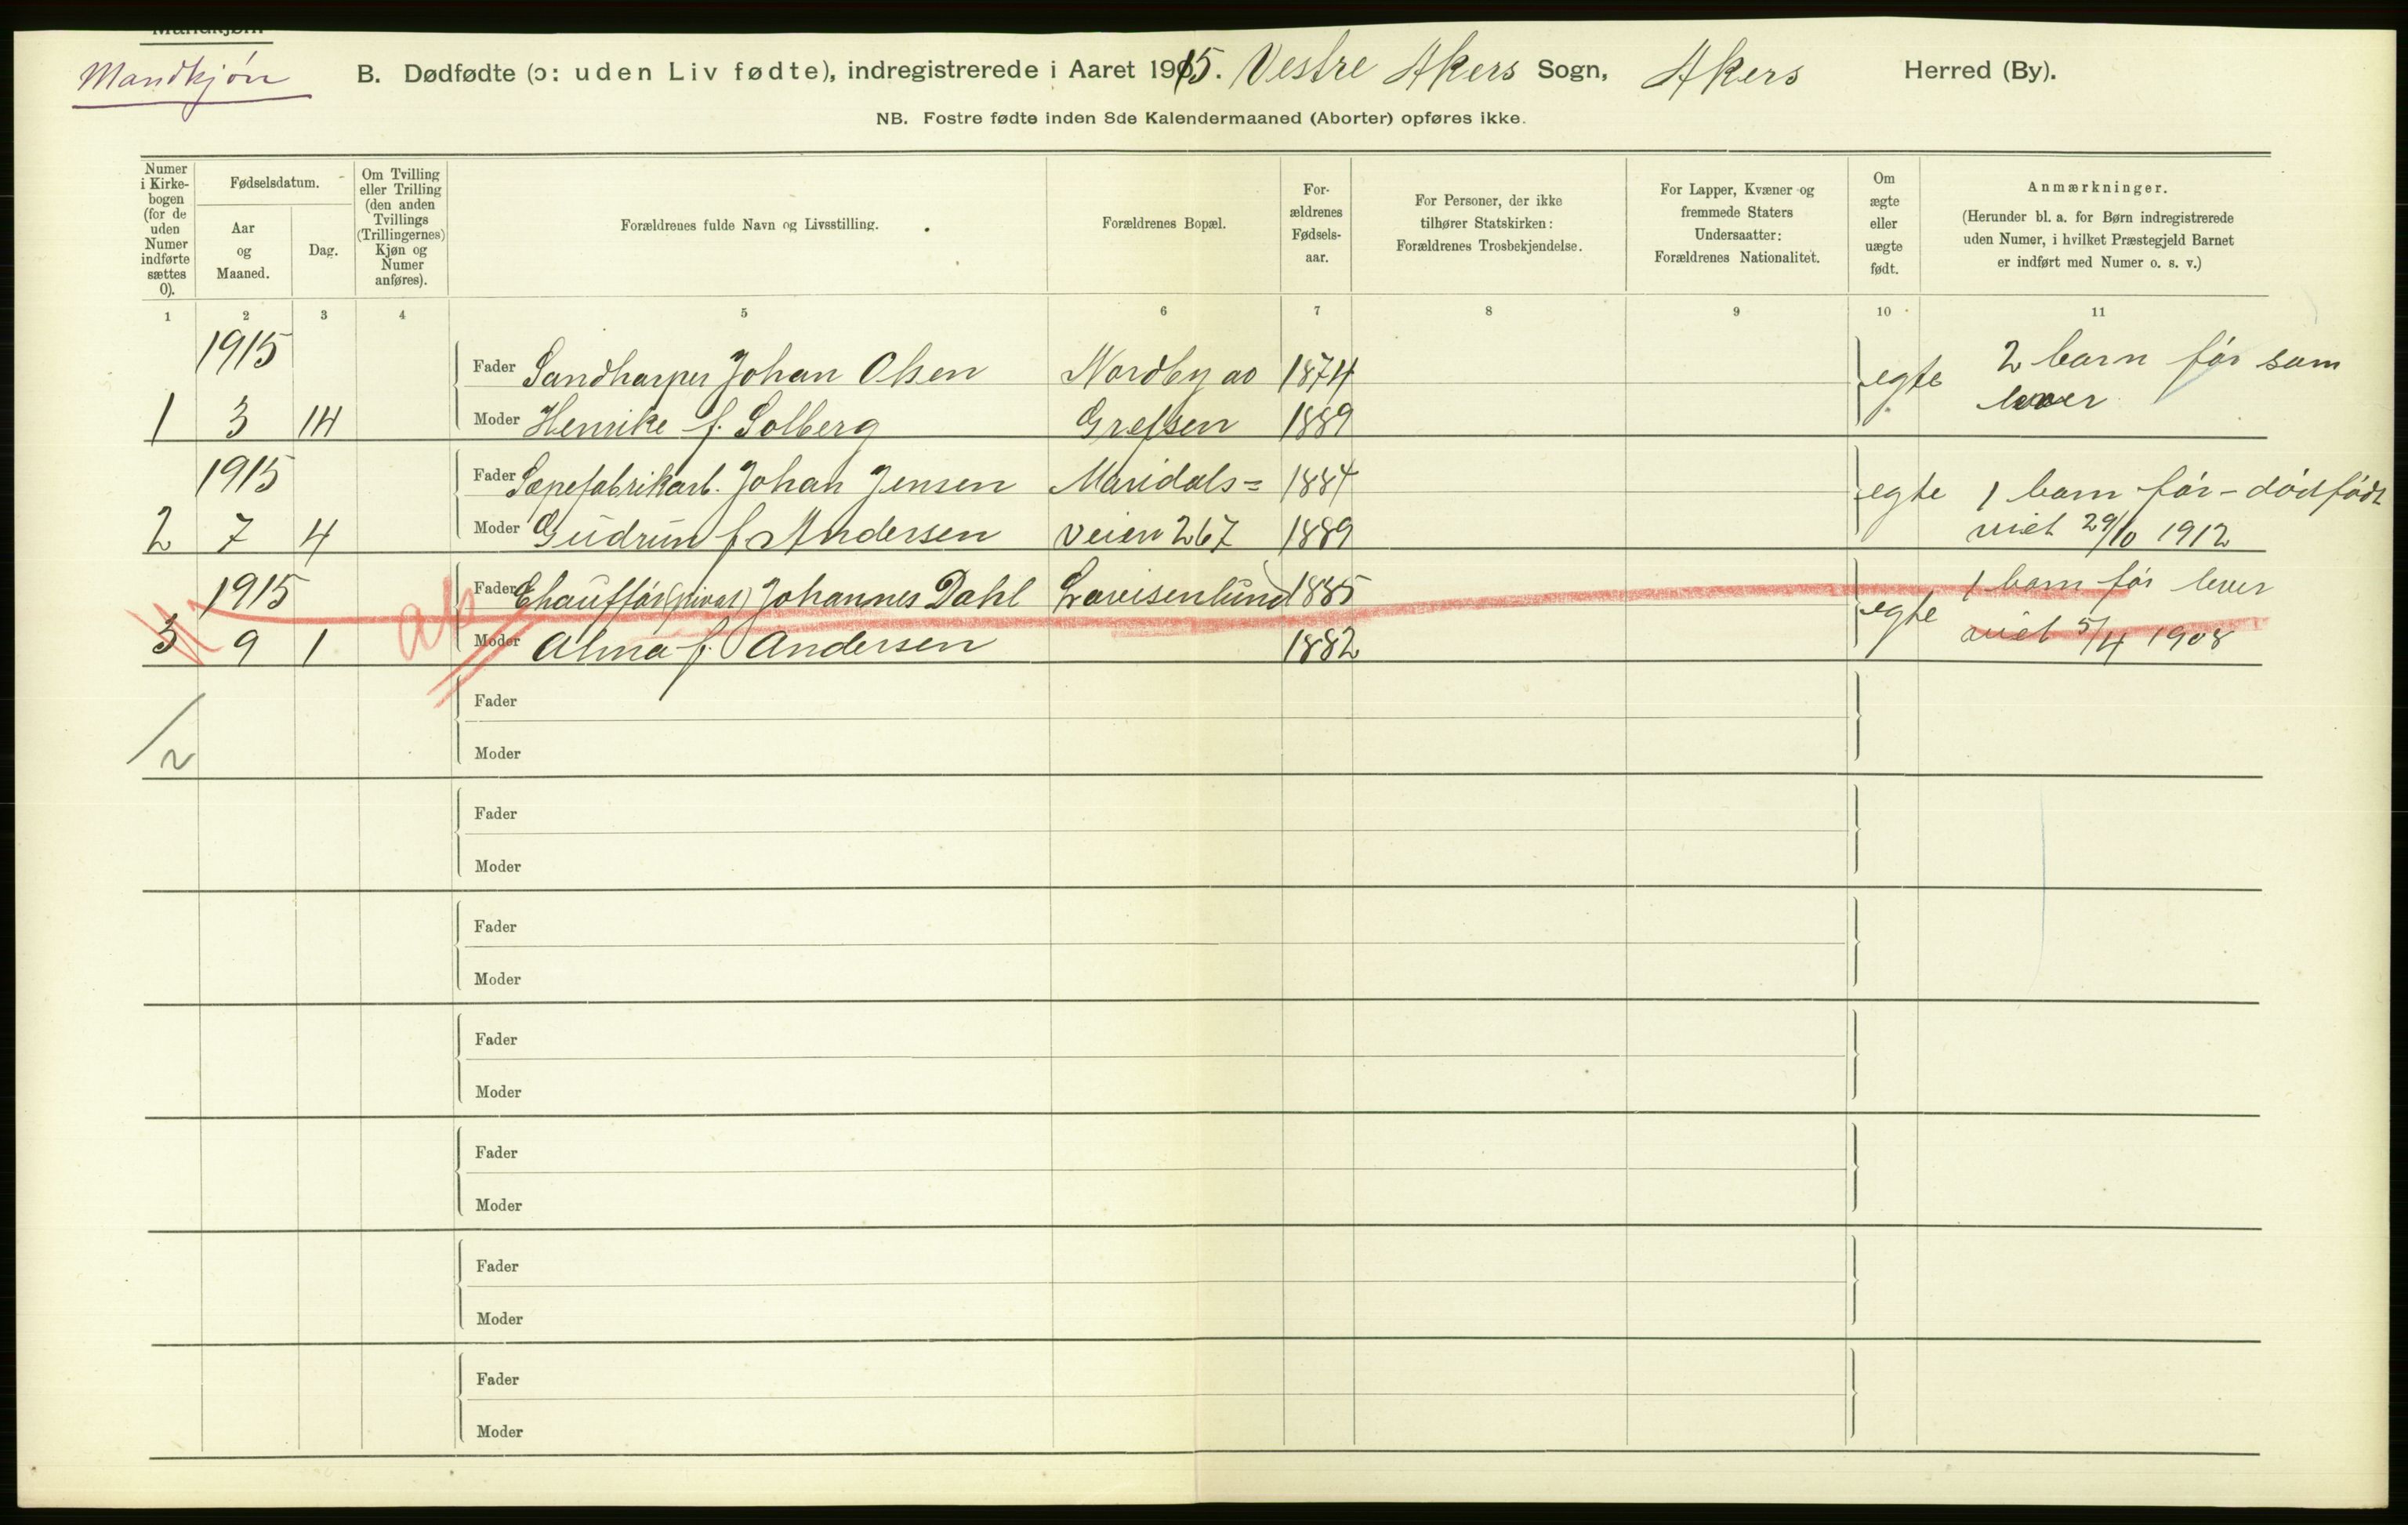 Mandkjøn
B. Dødfødte (ɔ: uden Liv fødte), indregistrerede i Aaret 1915. Vestre Akers Sogn, Akers Herred (By).
NB. Fostre fødte inden 8de Kalendermaaned (Aborter) opføres ikke.
Numer i Kirke-bogen (for de uden Numer indførte sættes 0).
Fødselsdatum.
Aar og Maaned.
Dag.
Om Tvilling eller Trilling (den anden Tvillings (Trillingernes) Kjøn og Numer anføres).
Forældrenes fulde Navn og Livsstilling.
Forældrenes Bopæl.
For-ældrenes Fødsels-aar.
For Personer, der ikke tilhører Statskirken: Forældrenes Trosbekjendelse.
For Lapper, Kvæner og fremmede Staters Undersaatter: Forældrenes Nationalitet.
Om ægte eller uægte født.
Anmærkninger.
(Herunder bl. a. for Børn indregistrerede uden Numer, i hvilket Præstegjeld Barnet er indført med Numer o. s. v.)
1 2 3 4 5 6 7 8 9 10 11
1915 Fader Sandharper Johan Olsen Nordby ao 1874 egte 2 barn før som
1 3 14 Moder Henrike f. Solberg Grefsen 1889 lever
1915 Fader Sæpefabrikarb. Johan Jensen Maridals= 1884 egte 1 barn før - dødfødt
2 7 4 Moder Gudrun f. Andersen veien 267 1889 viet 29/10 1912
1915 Fader Chauffør (privat) Johannes Dahl Lovisenlund 1885 egte 1 barn før lever
3 9 1 Moder Alma f. Andersen 1882 viet 5/4 1908
Fader
2 Moder
Fader
Moder
Fader
Moder
Fader
Moder
Fader
Moder
Fader
Moder
Fader
Moder